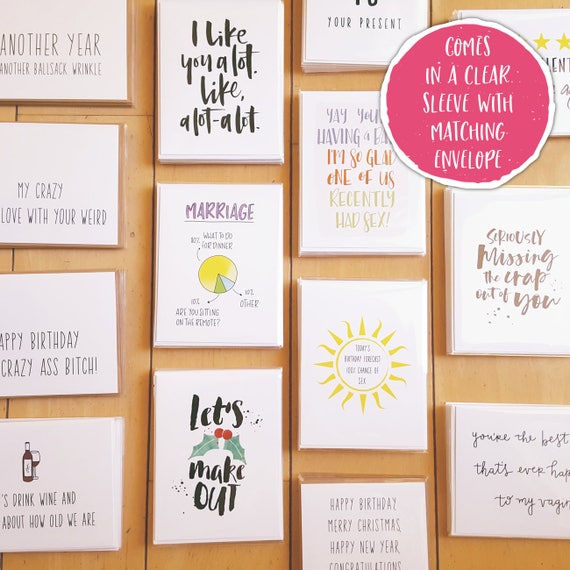 ANOTHER YEAR
ANOTHER BALLSACK WRINKLE
MY CRAZY
LOVE WITH YOUR WEIRD
APPY BIRTHDAY
CRAZY ASS BITCH!
S DRINK WINE AND
ABOUT HOW OLD WE ARE
I like
you a lot.
Like,
a lot-a lot.
MARRIAGE
80% WHAT TO DO
FOR DINNER
10% ARE YOU SITTING
ON THE REMOTE?
10%
OTHER
Let's
make
OUT
YOUR PRESENT
YAY YOU
HAVING A BA
I'M SO GLAD
ONE OF US
RECENTLY
HAD SEX!
TODAY'S
BIRTHDAY FORECAST
100% CHANCE OF
SEX
HAPPY BIRTHDAY
MERRY CHRISTMAS
HAPPY NEW YEAR
CONGRATULATIONS
COMES
IN A CLEAR
SLEEVE WITH
MATCHING
ENVELOPE
SERIOUSLY
Missing
the crap
out of you
you're the best
that's ever happ
to my vagin